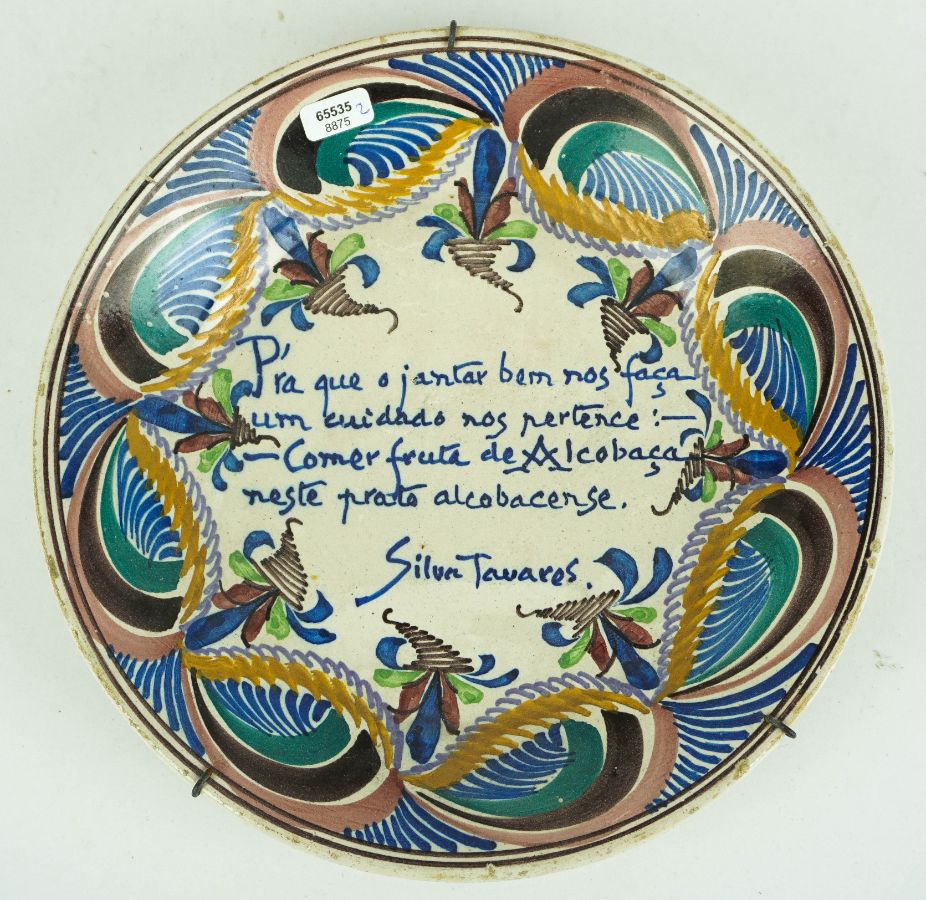 65535 2
8875
P'ra que o jantar bem nos faça
um cuidado nos pertence:—
— Comer fruta de Alcobaça
neste prato alcobacense.
Silva Tavares.